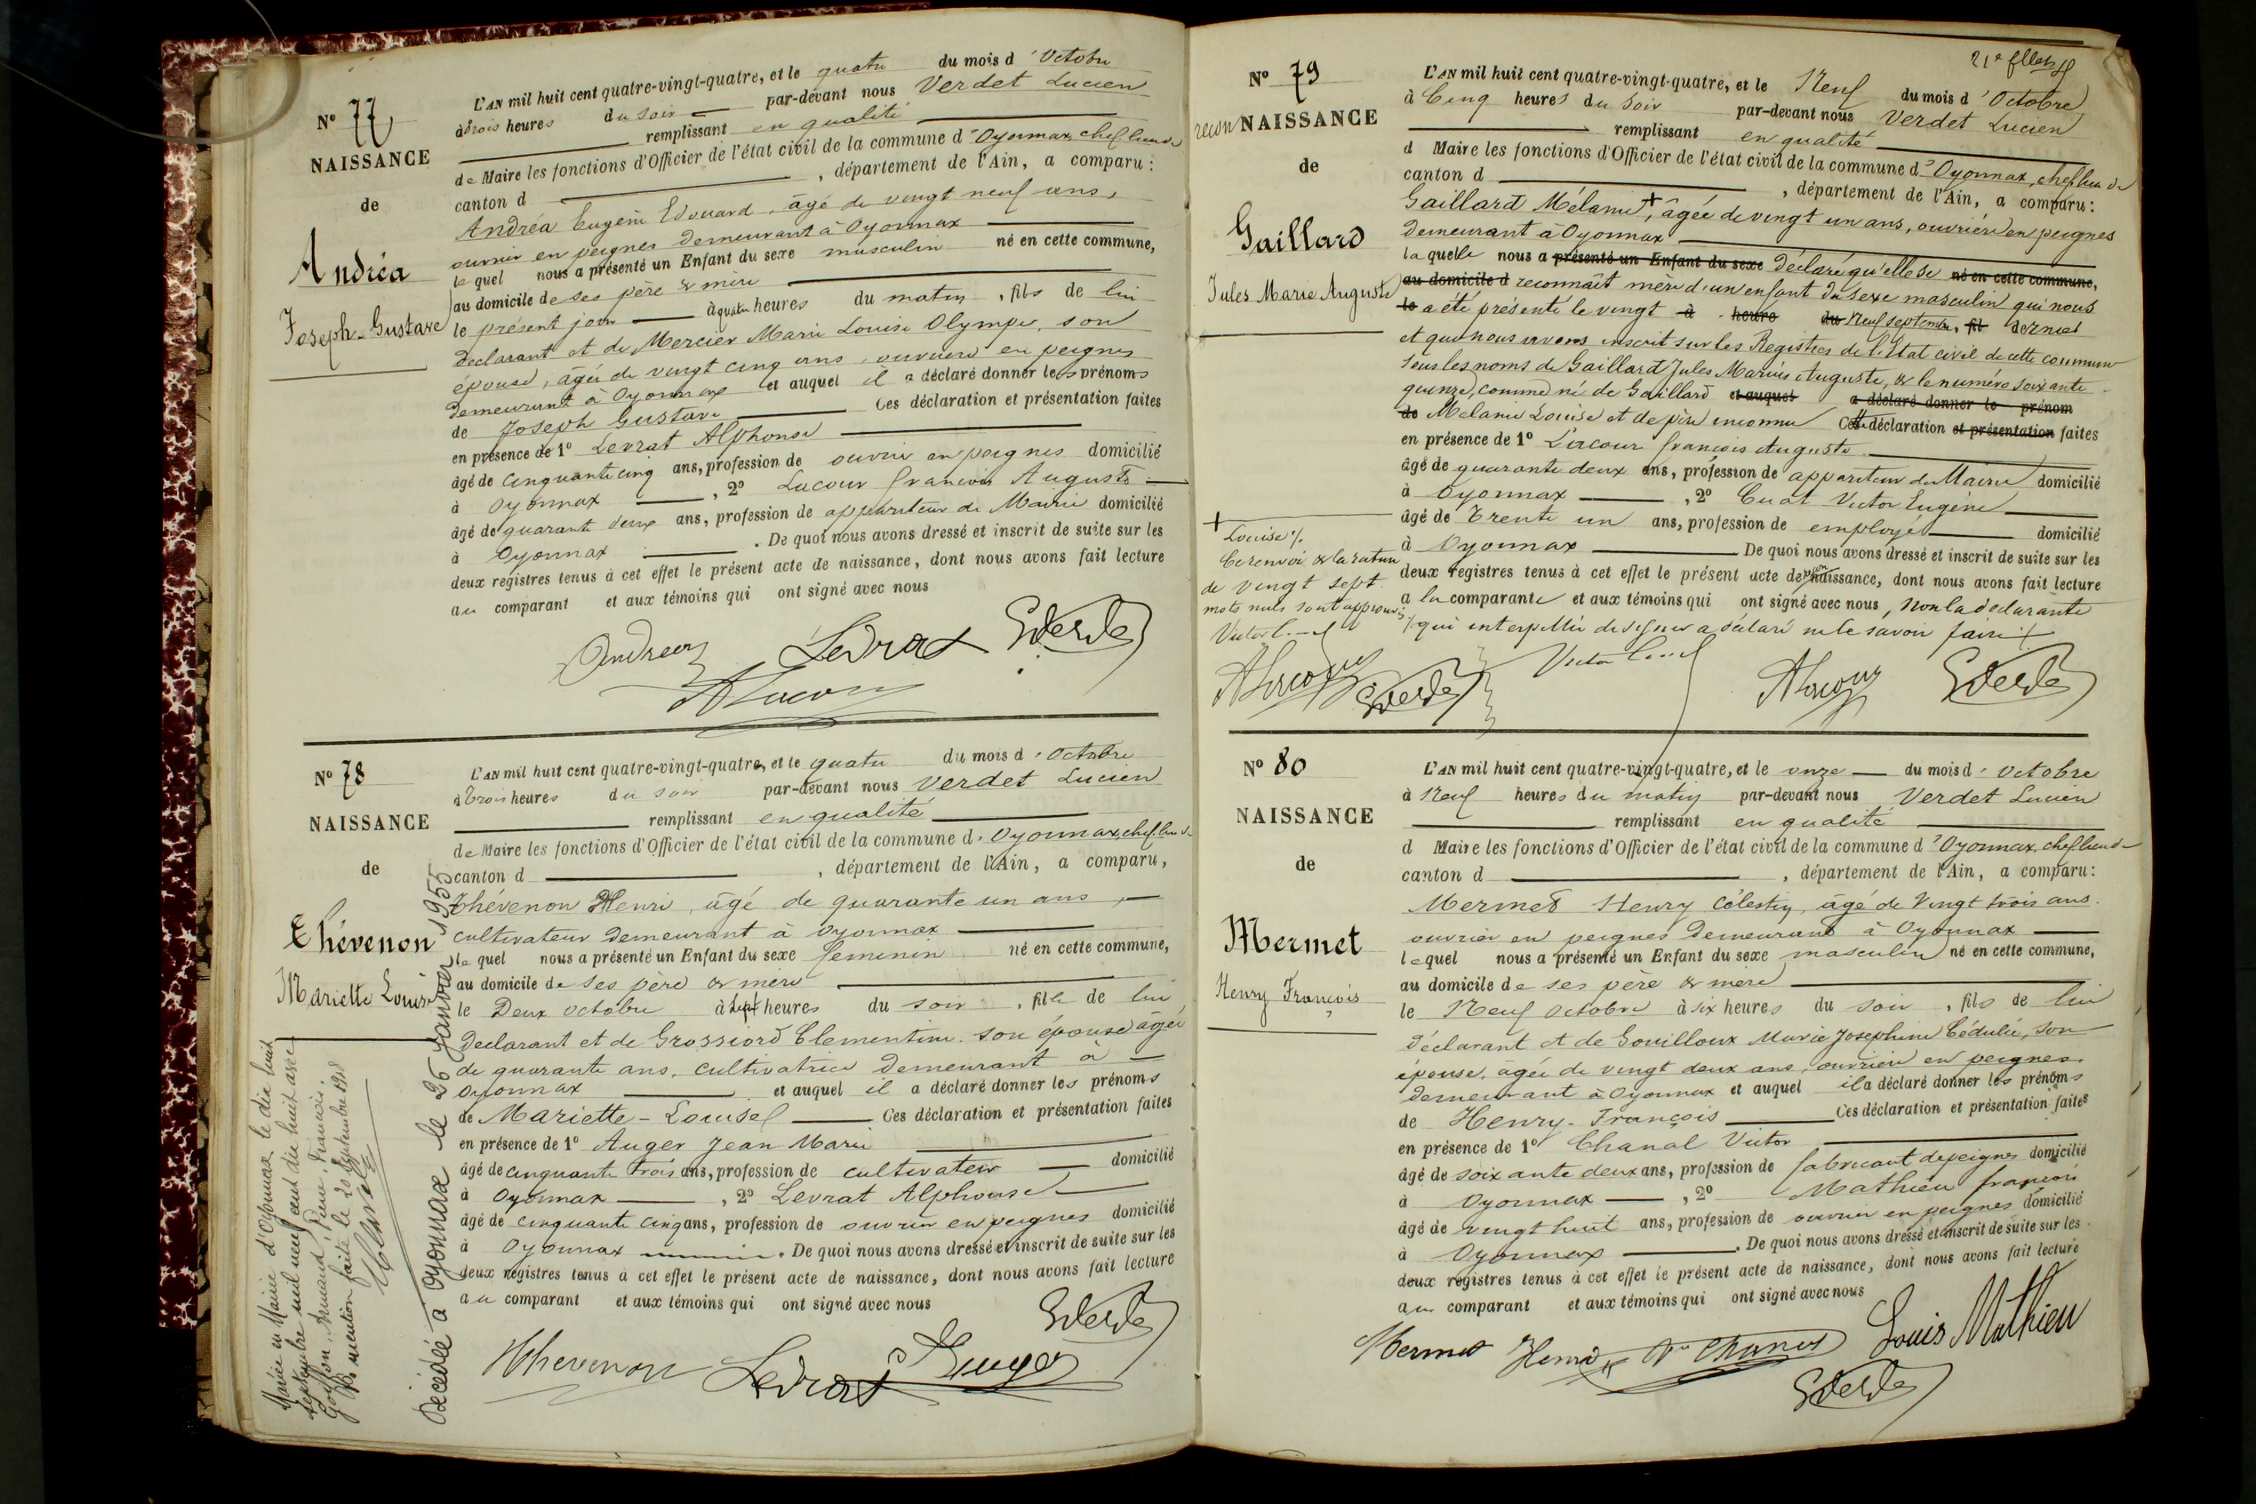 N° 77
NAISSANCE
de
Andréa
Joseph-Gustave
L'AN mil huit cent quatre-vingt-quatre, et le quatre du mois d'Octobre
à trois heures du soir par-devant nous Verdet Lucien
remplissant en qualité
de Maire les fonctions d'Officier de l'état civil de la commune d'Oyonnax, chef lieu de
canton d , département de l'Ain, a comparu:
Andréa Eugène Edouard, âgé de vingt neuf ans,
ouvrier en peignes demeurant à Oyonnax
lequel nous a présenté un Enfant du sexe masculin né en cette commune,
au domicile de ses père & mère
le présent jour à quatre heures du matin, fils de lui
déclarant et de Mercier Marie Louise Olympe, son
épouse, âgée de vingt cinq ans, ouvrière en peignes
demeurant à Oyonnax et auquel il a déclaré donner les prénoms
de Joseph Gustave Ces déclaration et présentation faites
en présence de 1° Levrat Alphonse
âgé de cinquante cinq ans, profession de ouvrier en peignes domicilié
à Oyonnax , 2° Lacour François Auguste
âgé de quarante deux ans, profession de appariteur de Mairie domicilié
à Oyonnax . De quoi nous avons dressé et inscrit de suite sur les
deux registres tenus à cet effet le présent acte de naissance, dont nous avons fait lecture
au comparant et aux témoins qui ont signé avec nous
Andrea Levrat
N° 78
NAISSANCE
de
Thévenon
Mariette Louise
L'AN mil huit cent quatre-vingt-quatre, et le quatre du mois d'Octobre
à trois heures du soir par-devant nous Verdet Lucien
remplissant en qualité
de Maire les fonctions d'Officier de l'état civil de la commune d'Oyonnax, chef lieu de
canton d , département de l'Ain, a comparu,
Thévenon Henri, âgé de quarante un ans,
cultivateur demeurant à Oyonnax
lequel nous a présenté un Enfant du sexe féminin né en cette commune,
au domicile de ses père & mère
le Deux octobre à sept heures du soir, fille de lui
déclarant et de Grossiord Clementine son épouse âgée
de quarante ans, cultivatrice demeurant à
Oyonnax et auquel il a déclaré donner les prénoms
de Mariette-Louise Ces déclaration et présentation faites
en présence de 1° Auger Jean Marie
âgé de cinquante trois ans, profession de cultivateur domicilié
à Oyonnax , 2° Levrat Alphonse
âgé de cinquante cinq ans, profession de ouvrier en peignes domicilié
à Oyonnax . De quoi nous avons dressé et inscrit de suite sur les
deux registres tenus à cet effet le présent acte de naissance, dont nous avons fait lecture
au comparant et aux témoins qui ont signé avec nous
Hthevenon Levrat Auger
Mariée en Mairie d'Oyonnax le dix huit
septembre mil neuf cent dix huit avec
Goiffon, Armand, Pierre, François.
mention faite le 20 septembre 1918
Décédée à Oyonnax le 26 Janvier 1955
21e
N° 79
recon NAISSANCE
de
Gaillard
Jules Marie Auguste
L'AN mil huit cent quatre-vingt-quatre, et le Neuf du mois d'Octobre
à Cinq heures du soir par-devant nous Verdet Lucien
remplissant en qualité
d Maire les fonctions d'Officier de l'état civil de la commune d'Oyonnax, chef lieu de
canton d , département de l'Ain, a comparu:
Gaillard Mélanie +, âgée de vingt un ans, ouvrière en peignes
demeurant à Oyonnax
laquelle nous a présenté un Enfant du sexe déclaré qu'elle se né en cette commune,
au domicile d reconnaît mère d'un enfant du sexe masculin qui nous
le a été présenté le vingt à heure du Neuf septembre, fil dernier
et que nous avons inscrit sur les Registres de l'Etat civil de cette commune
sous les noms de Gaillard Jules Marius Auguste, & le numéro soixante
quinze, comme né de Gaillard et auquel a déclaré donner le prénom
de Mélanie Louise et de père inconnu Cette déclaration et présentation faites
en présence de 1° Lacour François Auguste
âgé de quarante deux ans, profession de appariteur de Mairie domicilié
à Oyonnax , 2° Cuat Victor Eugène
âgé de Trente un ans, profession de employé domicilié
à Oyonnax De quoi nous avons dressé et inscrit de suite sur les
deux registres tenus à cet effet le présent acte de naissance, dont nous avons fait lecture
a la comparante et aux témoins qui ont signé avec nous, non la déclarante
qui interpellée de signer a déclaré ne le savoir faire
+ Louise
Ce renvoi & la rature
de vingt sept
mots nuls sont approuvés
N° 80
NAISSANCE
de
Mermet
Henry François
L'AN mil huit cent quatre-vingt-quatre, et le onze du mois d'octobre
à Neuf heures du matin par-devant nous Verdet Lucien
remplissant en qualité
d Maire les fonctions d'Officier de l'état civil de la commune d'Oyonnax, chef lieu de
canton d , département de l'Ain, a comparu:
Mermet Henry Célestin, âgé de vingt trois ans
ouvrier en peignes demeurant à Oyonnax
lequel nous a présenté un Enfant du sexe masculin né en cette commune,
au domicile de ses père & mère
le Neuf octobre à six heures du soir, fils de lui
déclarant et de Gouilloux Marie Josephine Cédulie, son
épouse, âgée de vingt deux ans, ouvrière en peignes
demeurant à Oyonnax et auquel il a déclaré donner les prénoms
de Henry-François Ces déclaration et présentation faites
en présence de 1° Chanal Victor
âgé de soixante deux ans, profession de fabricant de peignes domicilié
à Oyonnax , 2° Mathieu françois
âgé de vingt huit ans, profession de ouvrier en peignes domicilié
à Oyonnax . De quoi nous avons dressé et inscrit de suite sur les
deux registres tenus à cet effet le présent acte de naissance, dont nous avons fait lecture
au comparant et aux témoins qui ont signé avec nous
Mermet Henri Louis Mathieu